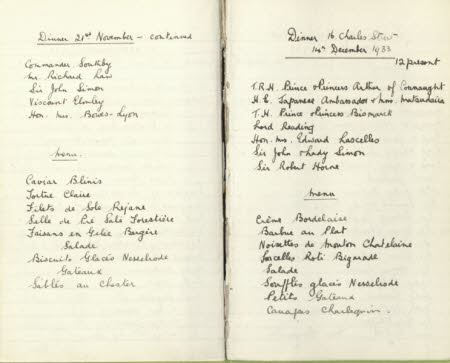 Dinner 21st November - continued
Commander Southby
Mr. Richard Law
Sir John Simon
Viscount Elmley
Hon. Mrs. Bowes-Lyon
Menu.
Caviar Blinis
Tortue Claire
Filets de Sole Rejane
Selle de Pré Salé Forestière
Faisans en Gelée Bergère
Salade
Biscuits Glacés Nesselrode
Gateaux
Sablés au Chester
Dinner 16 Charles Street
14th December 1933
12 present
T.R.H. Prince & Princess Arthur of Connaught
H.E. Japanese Ambassador & Mme. Matsudaira
T.H. Prince & Princess Bismarck
Lord Reading
Hon. Mrs. Edward Lascelles
Sir John & Lady Simon
Sir Robert Horne
Menu
Crème Bordelaise
Barbue au Plat
Noisettes de Mouton Chatelaine
Sarcelles Roti Bigarade
Salade
Soufflés glacés Nesselrode
Petits Gateaux
Canapas Charlequin.